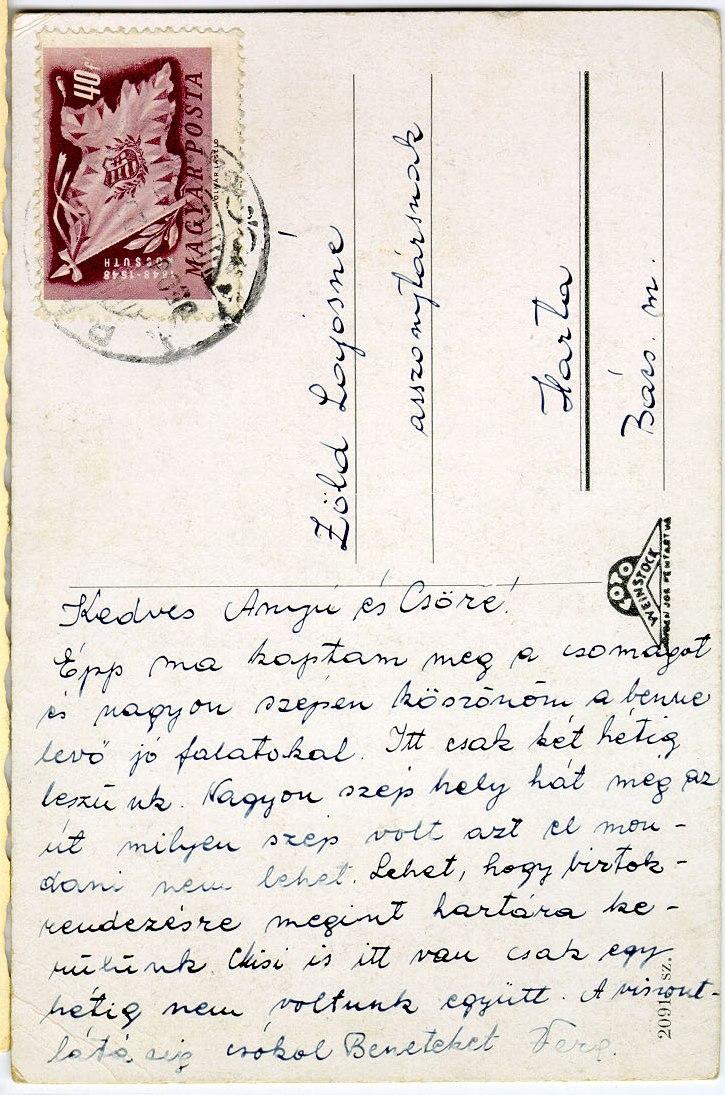 40f
MAGYAR POSTA
1848-1948
KOSSUTH
Zöld Lajosné
asszonytársnak
Harta
Bács. m.
FOTO
WEINSTOCK
Kedves Anyú és Csöre!
Épp ma kaptam meg a csomagot
és nagyon szépen köszönöm a benne
levő jó falatokal. Itt csak két hétig
leszünk. Nagyon szép hely hát még az
út milyen szép volt azt el mon-
dani nem lehet. Lehet, hogy birtok-
rendezésre megint hartára ke-
rülünk. Misi is itt van csak egy
hétig nem voltunk együtt. A viszont-
látásig csókol Beneteket
sz.